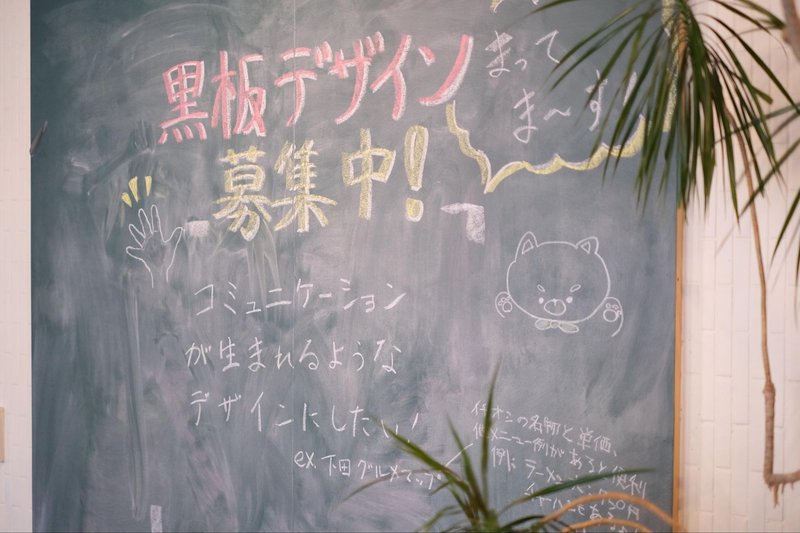 黒板デザイン
募集中!
まって
ま〜す!
コミュニケーション
が生まれるような
デザインにしたい!
ex. 下田グルメマップ
イチオシの名前と単価、
他メニュー例があると便利
例: ラーメン